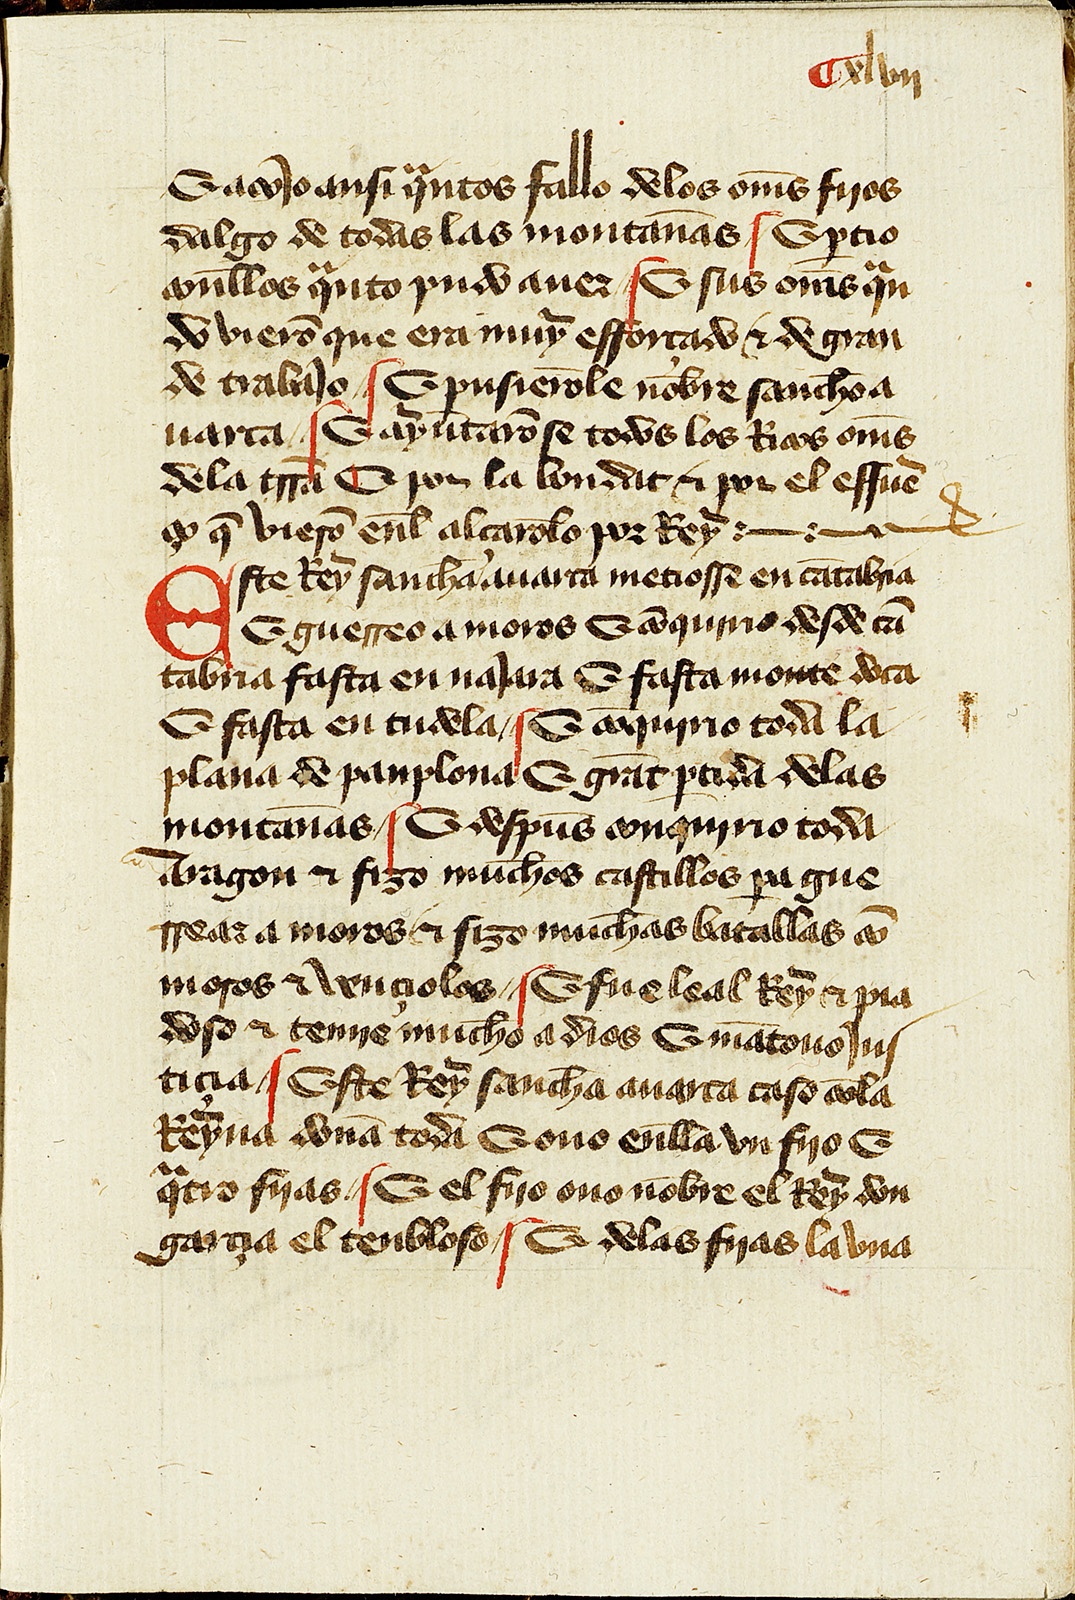 ¶ xlvij
E acojo ansi q̃ntos fallo delos om̃s fijos
dalgo de todas las montan̄as / E ꝑtio
con̄llos q̃nto pudo auer / E sus om̃s q̃n
do vierō que era muy esforçado ⁊ de gran
de trabajo / E pusierōle nōbre sanch̄o a
uarca / E ayūtarō se todos los Ricos om̃s
dela tr̄ra E por la bondat ⁊ por el esfuer̄
ço q̄ vierō en̄l alçarōlo por Rey :—:—
Este Rey sanch̄a auarca metiosse en cātabria
E guerreo a moros E cōquirio desde cā
tabria fasta en najara E fasta monte doca
E fasta en tudela / E cōquirio toda la
plana de panplona E grāt ꝑtida delas
montan̄as / E despues conquirio toda
Aragon ⁊ fizo much̄os castillos ꝑa gue
rrear a moros ⁊ fizo much̄as batallas cō
moros ⁊ vençiolos / E fue leal Rey ⁊ pia
doso ⁊ temie much̄o a dios E mātouo jus
ticia / Este Rey sanch̄a auarca caso cō la
Reyna don̄a toda E ouo en̄lla vn fijo E
q̃tro fijas / E el fijo ouo nōbre el Rey don
garçia el tenbloso / E delas fijas la vna